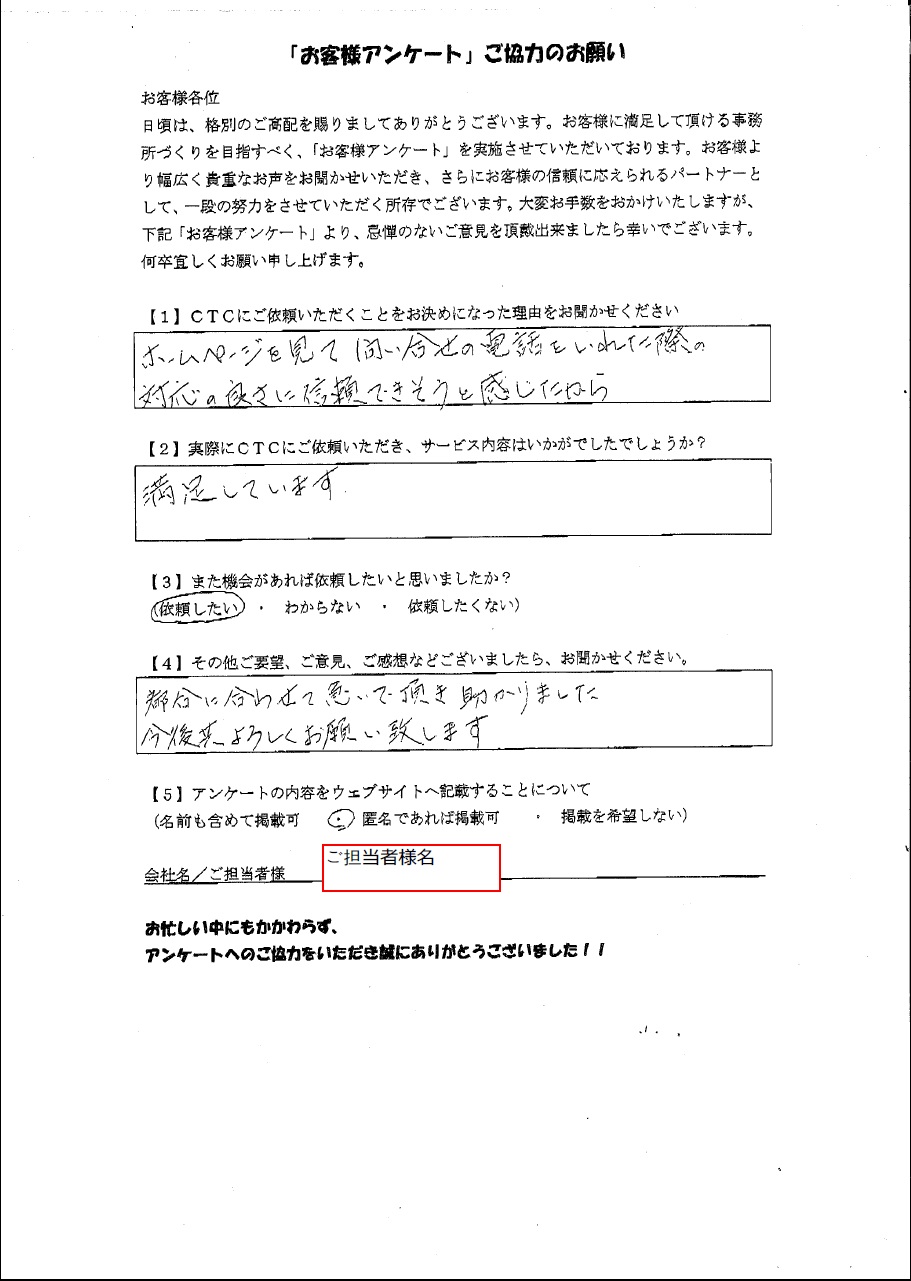 「お客様アンケート」ご協力のお願い
お客様各位
日頃は、格別のご高配を賜りましてありがとうございます。お客様に満足して頂ける事務
所づくりを目指すべく、「お客様アンケート」を実施させていただいております。お客様よ
り幅広く貴重なお声をお聞かせいただき、さらにお客様の信頼に応えられるパートナーと
して、一段の努力をさせていただく所存でございます。大変お手数をおかけいたしますが、
下記「お客様アンケート」より、忌憚のないご意見を頂戴出来ましたら幸いでございます。
何卒宜しくお願い申し上げます。
【1】CTCにご依頼いただくことをお決めになった理由をお聞かせください
ホームページを見て 問い合せの電話をいれた際の
対応の良さに信頼できそうと感じたから
【2】実際にCTCにご依頼いただき、サービス内容はいかがでしたでしょうか？
満足しています.
【3】また機会があれば依頼したいと思いましたか？
(依頼したい ・ わからない ・ 依頼したくない)
【4】その他ご要望、ご意見、ご感想などございましたら、お聞かせください。
都合に合わせて急いで頂き助かりました
今後共よろしくお願い致します
【5】アンケートの内容をウェブサイトへ記載することについて
(名前も含めて掲載可 ・ 匿名であれば掲載可 ・ 掲載を希望しない)
会社名／ご担当者様 ご担当者様名
お忙しい中にもかかわらず、
アンケートへのご協力をいただき誠にありがとうございました！！